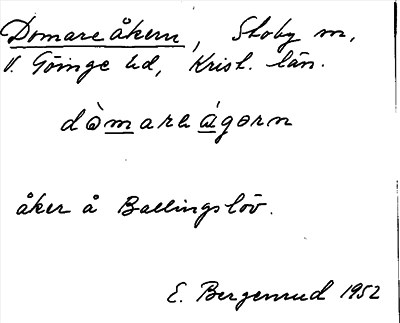 Domareåkern, Stoby sn,
V. Göinge hd, Krist. län.
dòmarəágərn
åker å Ballingslöv.
E. Bergenrud 1952